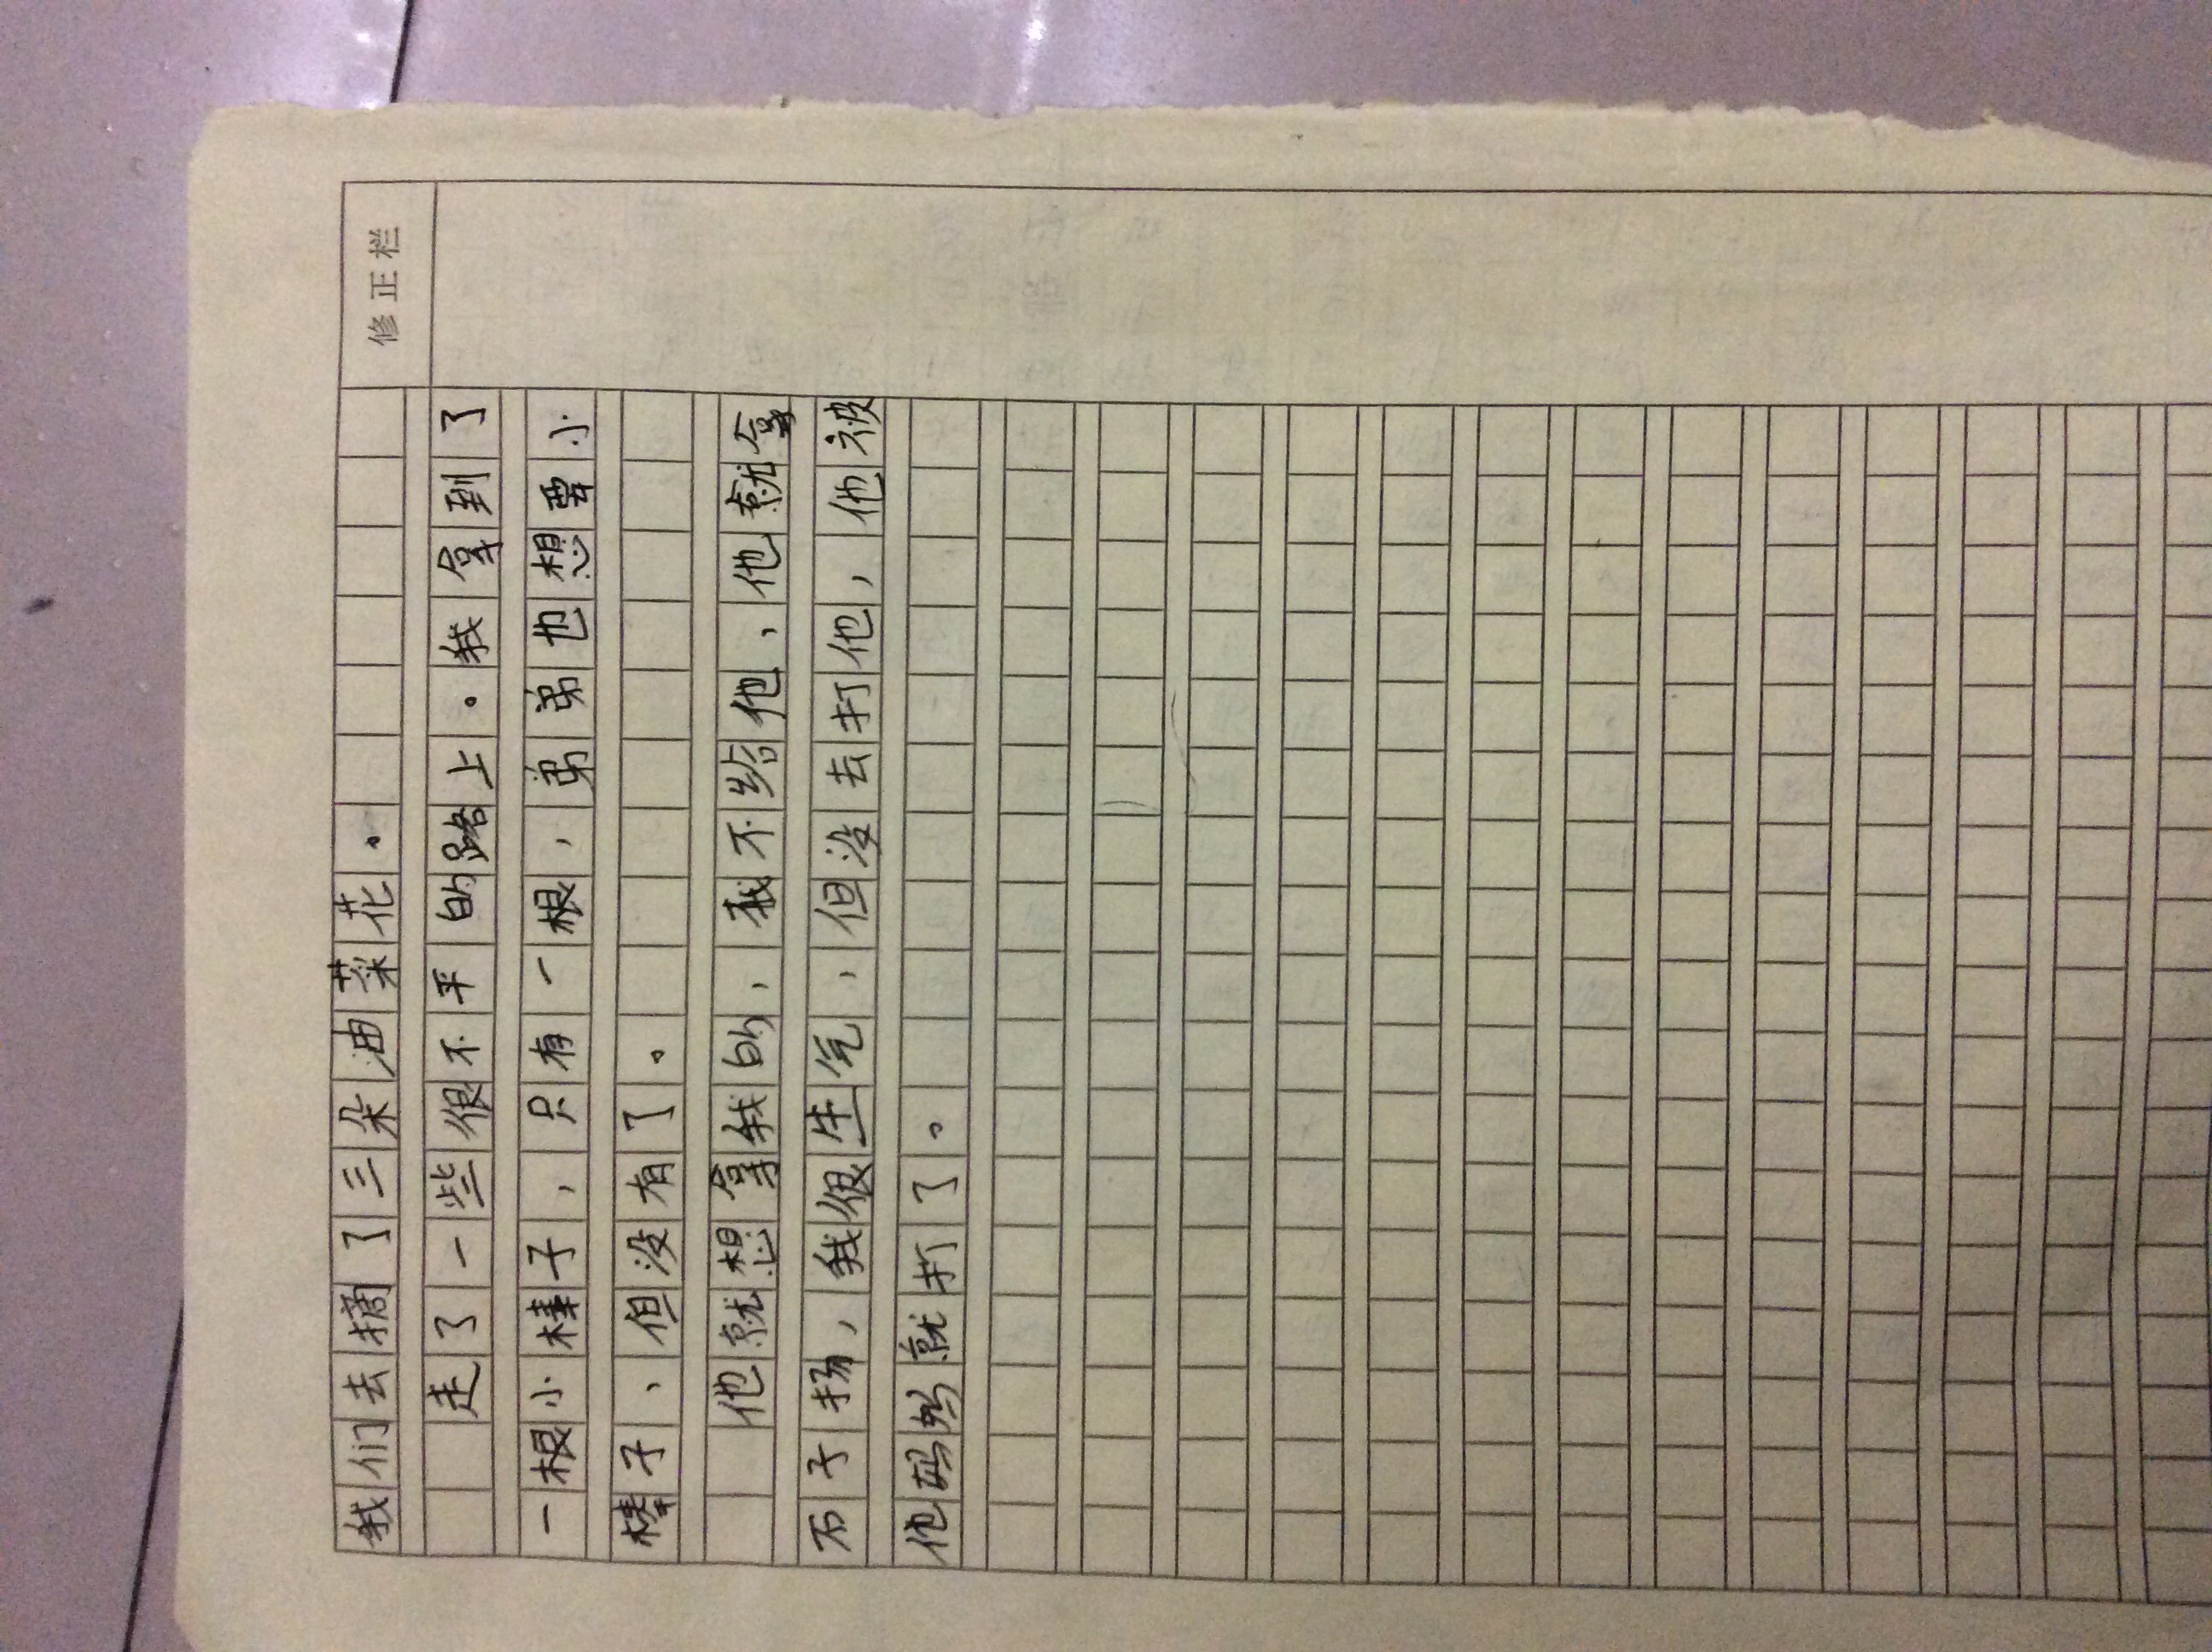 修正栏
我们去摘了三朵油菜花。
走了一些很不平的路上。我拿到了
一根小棒子,只有一根,弟弟也想要小
棒子、但没有了。
他就想拿我的,我不给他、他就拿
石子扬,我很生气,但没去打他,他被
他妈就打了。